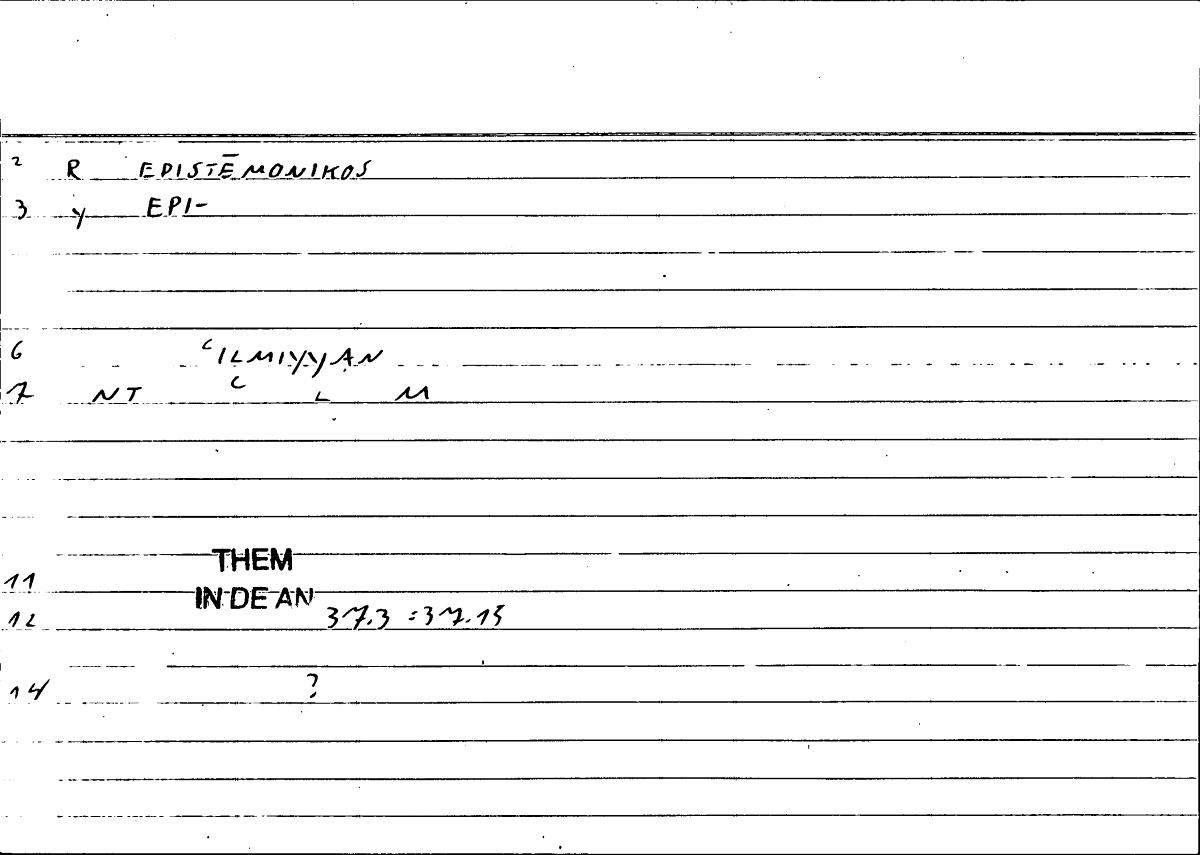 2 R EPISTĒMONIKOS
3 y EPI-
6 ʿILMIYYAN
7 NT ʿ L M
THEM
11
IN DE AN
12 37.3 = 37.15
14 ?